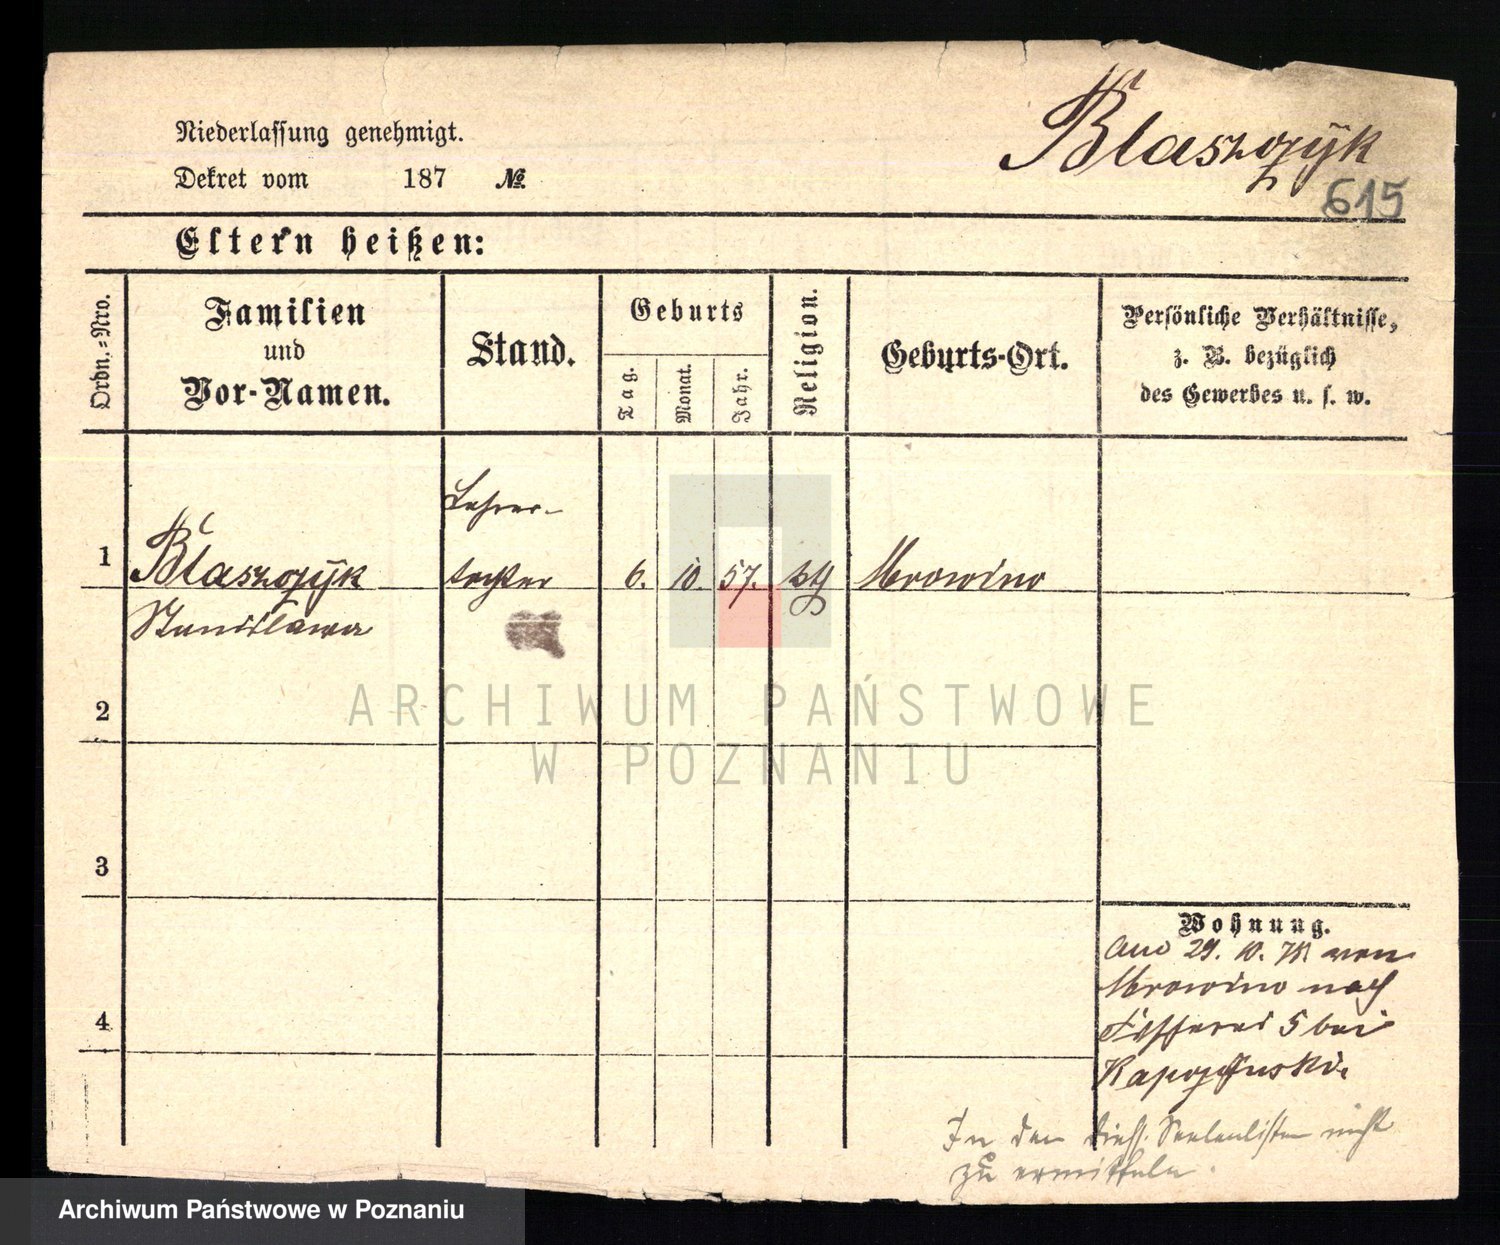 Niederlassung genehmigt.
Dekret vom 187 №
Błaszczÿk
615
Eltern heißen:
Ordn.=Nro.
Familien
und
Vor-Namen.
Stand.
Geburts
Tag.
Monat.
Jahr.
Religion.
Geburts-Ort.
Persönliche Verhältnisse,
z. B. bezüglich
des Gewerbes u. s. w.
1
Błaszczÿk
Stanisława
Lehrer-
tochter
6. 10. 57. kth Mrowino
2
3
4
Wohnung.
29. 10. 78 von
Mrowino nach
Fischerei 5 bei
In den dießs. Seelenlisten nicht
zu ermitteln.
ARCHIWUM PAŃSTWOWE
W POZNANIU
Archiwum Państwowe w Poznaniu